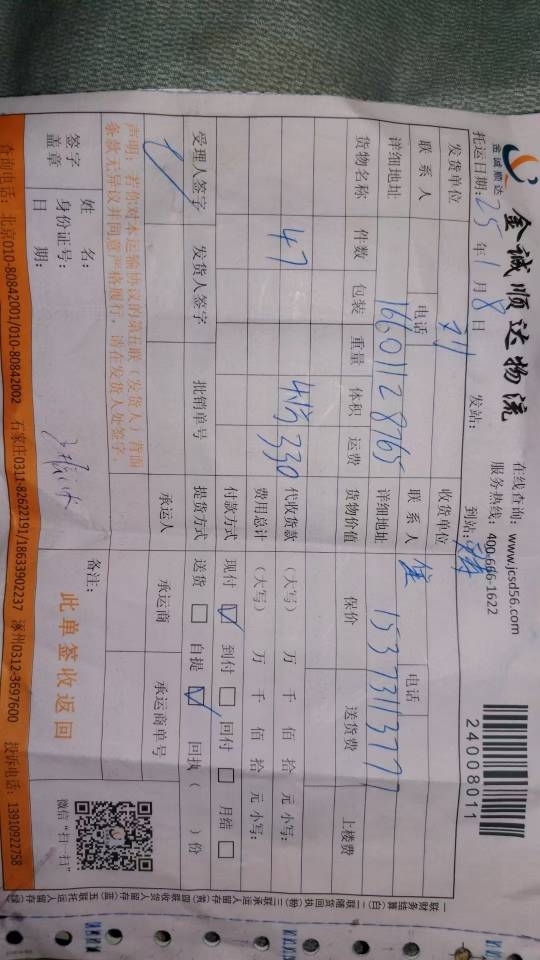 金诚顺达
金诚顺达物流
在线查询：www.jcsd56.com
服务热线：400-666-1622
24008011
托运日期：25年1月8日 发站： 到站：
发货单位 刘 收货单位
联系人 电话 联系人 电话
详细地址 16601128765 详细地址 15373113777
货物名称 件数 包装 重量 体积 运费 货物价值 保价 送货费 上楼费
47 330 代收货款 （大写） 万 仟 佰 拾 元 小写：
费用总计 （大写） 万 仟 佰 拾 元 小写：
付款方式 现付 ☑ 到付 □ 回付 □ 月结 □
受理人签字 发货人签字 批销单号 提货方式 送货 □ 自提 ☑ 回执（ ）份
承运人 承运商 承运商单号
声明：若你对本运输协议的第五联（发货人）背面
条款无异议并同意严格履行，请在发货人处签字。
签字
盖章
姓 名：
身份证号：
日 期：
备注：
此单签收返回
微信“扫一扫”
查询电话：北京010-80842001/010-80842002 石家庄0311-82622191/18633902237 涿州0312-3697600 投诉电话：13910922758